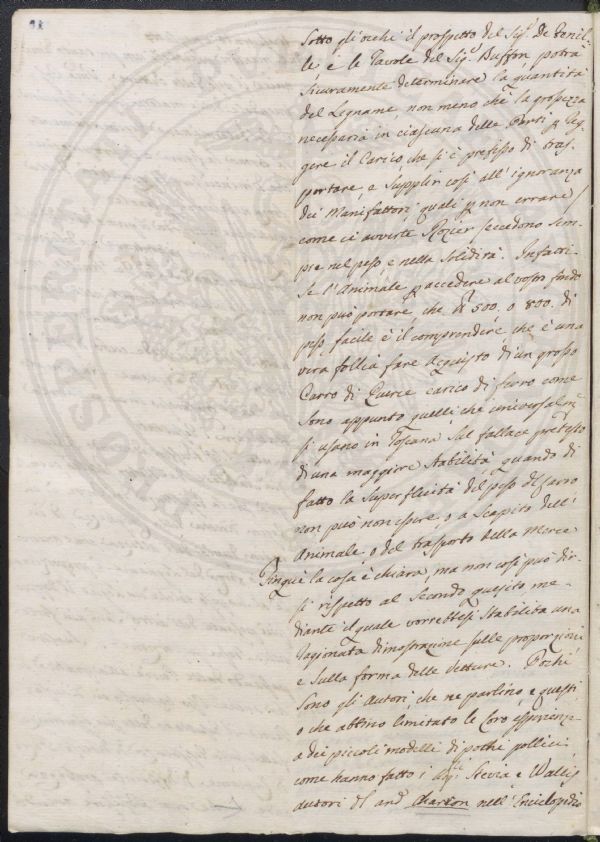 Sotto gli occhi il prospetto del Sig.r De Fenil-
le, e le Tavole del Sig.r Buffon potrà
sicuramente determinare la quantità
del Legname, non meno che la grossezza
necessaria in ciascuna delle Parti p reg-
gere il Carico che si è prefisso di tras-
portare, e supplir così all'ignoranza
dei Manifattori, quali p non errare,
come ci avverte Rozier, eccedono sem-
pre nel peso e nella Solidità. Infatti
se l'Animale p accedere al vostro fondo
non può portare, che 500, o 800. di
peso, facile è il comprendere, che è una
vera follia fare Acquisto di un grosso
Carro di Querce carico di ferro come
sono appunto quelli, che universalm.e
si usano in Toscana sul fallace pretesto
di una maggiore Stabilità, quando di
fatto la superfluità del peso del Carro
non può non essere, o a Scapito dell'
Animale, o del trasporto della Merce
Finqui la cosa è chiara, ma non così può dir-
si rispetto al Secondo quesito, me-
diante il quale vorrebbesi stabilita una
ragionata dimostrazione sulle proporzioni
e sulla forma delle vetture. Pochi
sono gli Autori, che ne parlino, e questi
o che abbino limitato le loro esperienze
a dei piccoli modelli di pochi pollici
come hanno fatto i Stevin e Wallis
autori dl and Charton nell'Enciclopedia